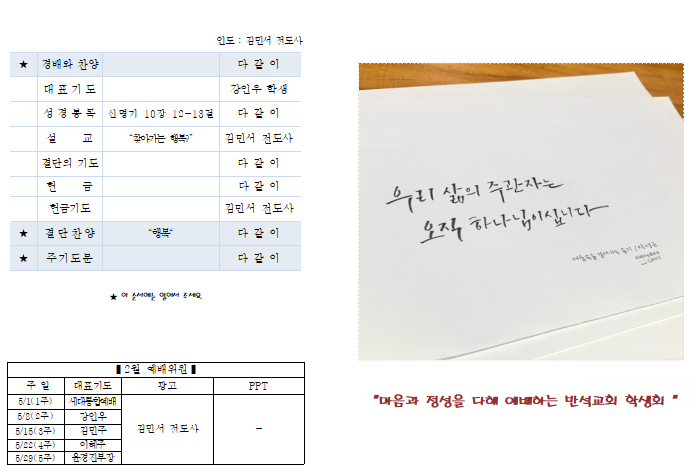 인도 : 김민서 전도사
★ 경배와 찬양 다 같 이
대 표 기 도 강인우 학생
성 경 봉 독 신명기 10장 12-13절 다 같 이
설 교 "찾아가는 행복?" 김민서 전도사
결단의 기도 다 같 이
헌 금 다 같 이
헌금기도 김민서 전도사
★ 결 단 찬 양 "행복" 다 같 이
★ 주 기 도 문 다 같 이
★ 이 순서에는 일어서 주세요
▮2월 예배위원▮
주 일 대표기도 광고 PPT
5/1(1주) 세대통합예배
5/8(2주) 강인우
5/15(3주) 김민주
김민서 전도사 -
5/22(4주) 이혜주
5/29(5주) 윤경진부장
우리 삶의 주관자는
오직 하나님이십니다
"마음과 정성을 다해 예배하는 반석교회 학생회 "